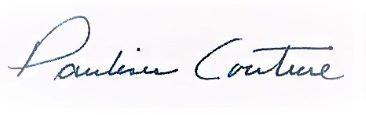 Pauline Couture